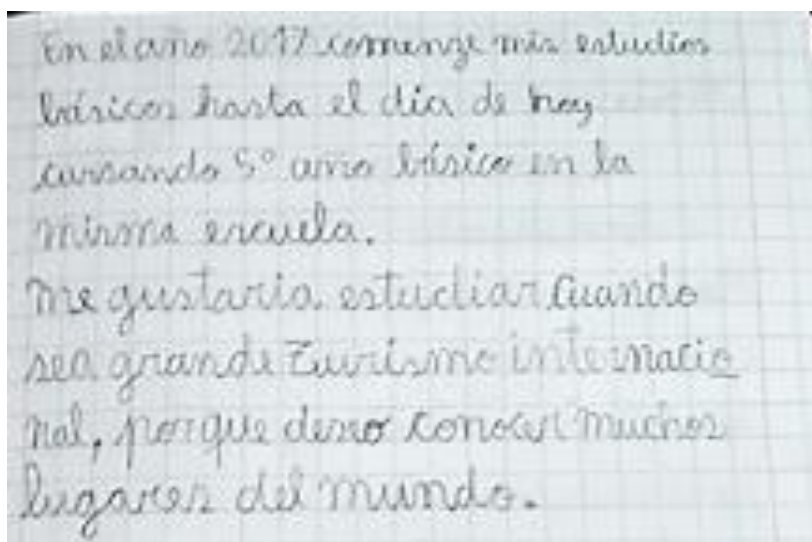 En el año 2017 comenze mis estudios
básicos hasta el día de hoy
cursando 5° año básico en la
misma escuela.
Me gustaria estudiar Cuando
sea grande Turismo internacio
nal, porque deseo conocer muchos
lugares del mundo.